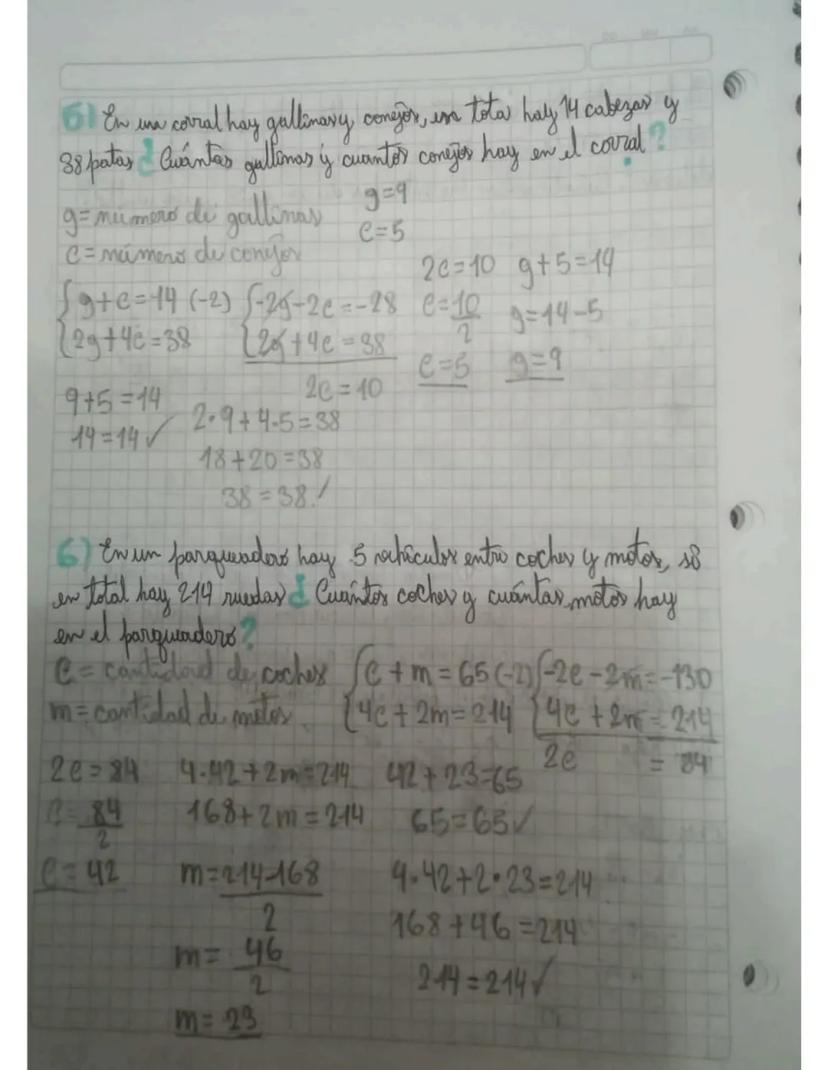 5) En un corral hay gallinas y conejos, en tota hay 14 cabezas y
38 patas ¿Cuántas gallinas y cuantos conejos hay en el corral?
g = número de gallinas
g = 9
c = número de conejos
c = 5
g + c = 14 (-2)
2g + 4c = 38
-2g - 2c = -28
2g + 4c = 38
2c = 10
2c = 10
c = 10/2
c = 5
g + 5 = 14
g = 14 - 5
g = 9
9 + 5 = 14
14 = 14 ✓
2·9 + 4·5 = 38
18 + 20 = 38
38 = 38 ✓
6) En un parqueadero hay 5 vehículos entre coches y motos, si
en total hay 214 ruedas ¿Cuántos coches y cuántas motos hay
en el parqueadero?
c = cantidad de coches
m = cantidad de motos
c + m = 65 (-2)
4c + 2m = 214
-2c - 2m = -130
4c + 2m = 214
2c = 84
2c = 84
c = 84/2
c = 42
4·42 + 2m = 214
168 + 2m = 214
m = 214-168/2
m = 46/2
m = 23
42 + 23 = 65
65 = 65 ✓
4·42 + 2·23 = 214
168 + 46 = 214
214 = 214 ✓